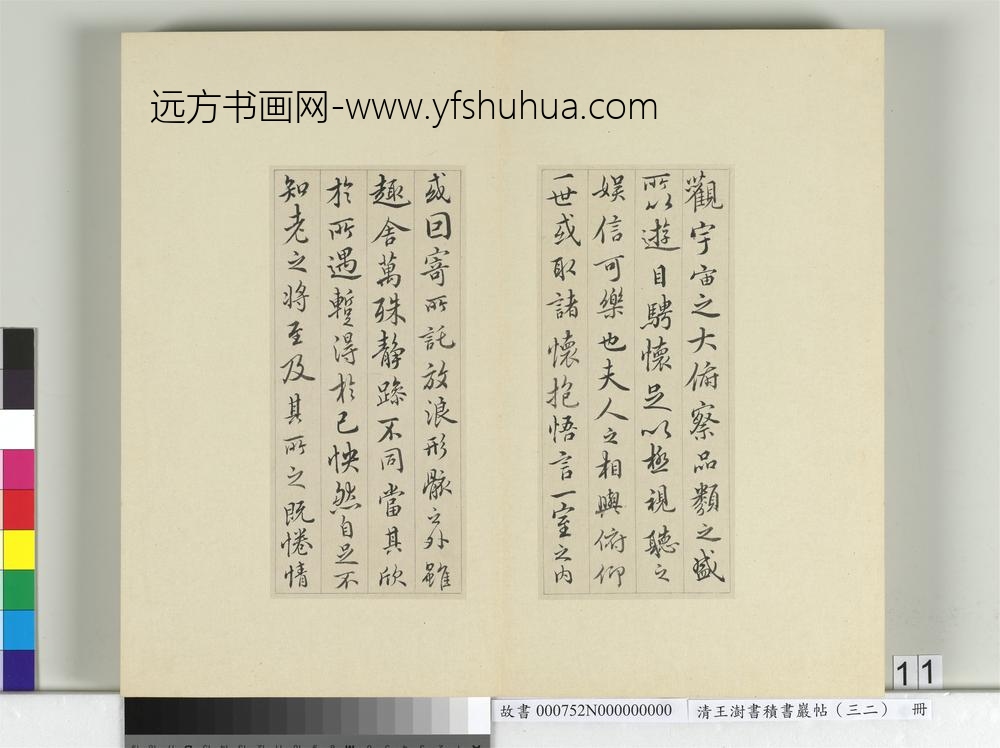 远方书画网-www.yfshuhua.com
觀宇宙之大俯察品類之盛
所以遊目騁懷足以極視聽之
娱信可樂也夫人之相與俯仰
一世或取諸懷抱悟言一室之内
或因寄所託放浪形骸之外雖
趣舍萬殊静躁不同當其欣
於所遇暫得於己怏然自足不
知老之将至及其所之既惓情
11
故書 000752N000000000
清王澍書積書巖帖（三二） 冊